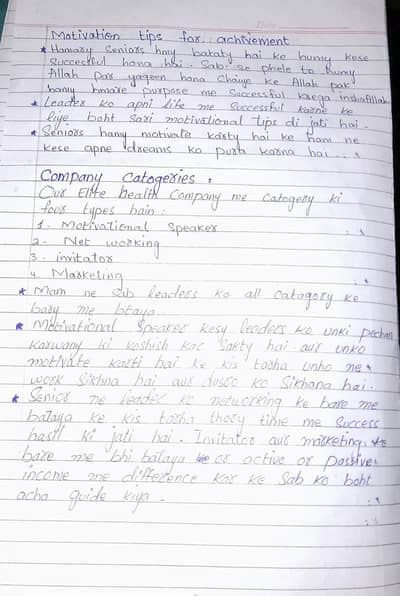 Motivation tips for achivement
* Hamary Seniors hmy bataty hai ke humy kese
Successful hona hai. Sab se phele to humy
Allah par yaqeen hona Chaiye ke Allah pak
hamy hmare purpose me Successful karega inshaAllah
* Leader ko apni life me Successful karne ke
liye boht sari motivational tips di jati hai.
* Seniors hamy motivate karty hai ke ham ne
kese apne dreams ko pura karna hai...
Company Catogeries :
Our Elite health Company me catogery ki
four types hain :
1- Motivational Speaker
2- Net working
3- invitator
4. Marketing
* Mam ne Sab leaders ko all Catagory ke
bary me btaya.
* Motivational Speaker kesy leaders ko unki pechan
karwany ki koshish kar sakty hai aur unko
motivate karti hai ke kis tarha unho ne
work Sikhna hai aur dusro ko Sikhana hai.
* Senior ne leader ko networking ke bare me
bataya ke kis tarha thory time me Success
hasil ki jati hai. Invitator aur marketing ke
bare me bhi bataya or active or passive
income me difference kar ke Sab ko boht
acha guide kiya.